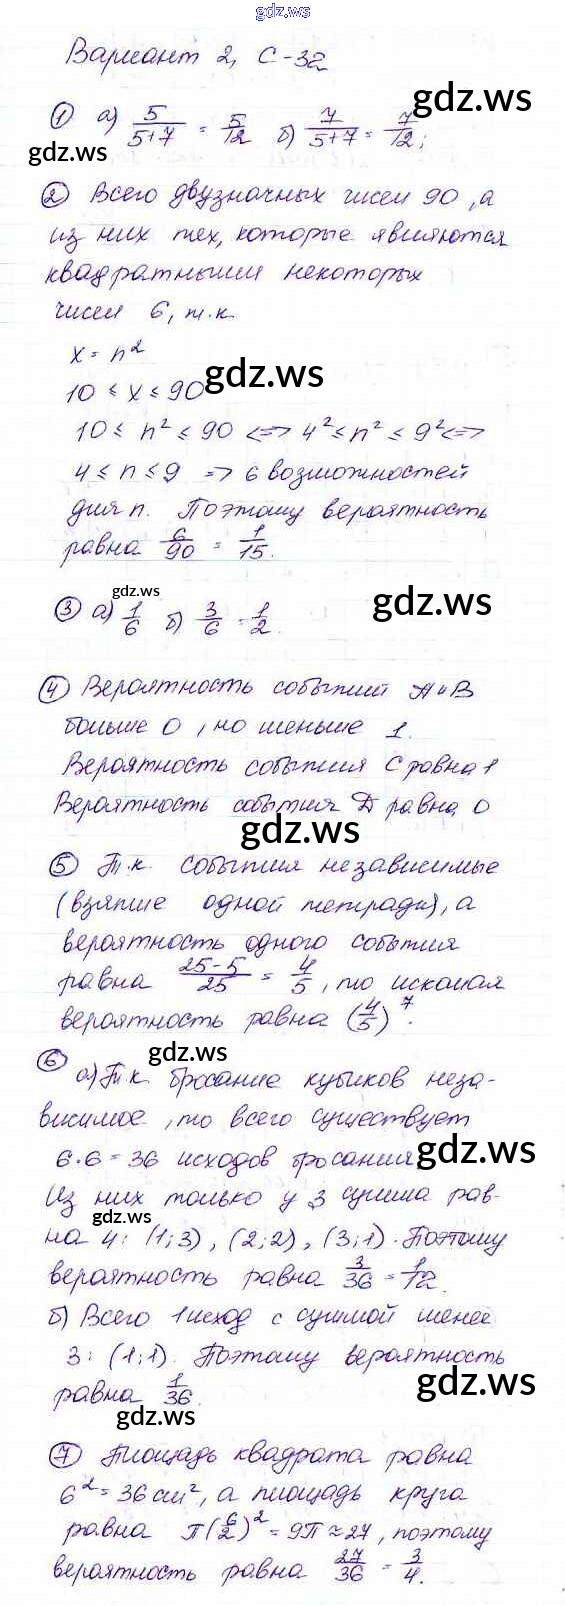 gdz.ws
Вариант 2, С-32
gdz.ws
① а) 5/(5+7) = 5/12 б) 7/(5+7) = 7/12;
gdz.ws
② Всего двузначных чисел 90, а
из них тех, которые являются
квадратными некоторых
чисел 6, т.к.
x = n²
gdz.ws
10 ≤ x ≤ 90
10 ≤ n² ≤ 90 <=> 4² ≤ n² ≤ 9² <=>
4 ≤ n ≤ 9 => 6 возможностей
для n. Поэтому вероятность
равна 6/90 = 1/15.
gdz.ws
gdz.ws
③ а) 1/6 б) 3/6 = 1/2.
④ Вероятность событий А и В
больше 0, но меньше 1.
Вероятность события С равна 1
Вероятность события D равна 0
gdz.ws
⑤ Т.к. события независимые
(взятие одной тетради), а
вероятность одного события
равна (25-5)/25 = 4/5, то искомая
вероятность равна (4/5)⁷.
gdz.ws
⑥ а) Т.к. бросание кубиков неза-
висимое, то всего существует
6·6 = 36 исходов бросания
gdz.ws
Из них только у 3 сумма рав-
gdz.ws
на 4: (1;3), (2;2), (3;1). Поэтому
вероятность равна 3/36 = 1/12.
б) Всего 1 исход с суммой менее
3: (1;1). Поэтому вероятность
gdz.ws
равна 1/36.
gdz.ws
⑦ Площадь квадрата равна
6² = 36 см², а площадь круга
равна π(6/2)² = 9π ≈ 27, поэтому
вероятность равна 27/36 = 3/4.